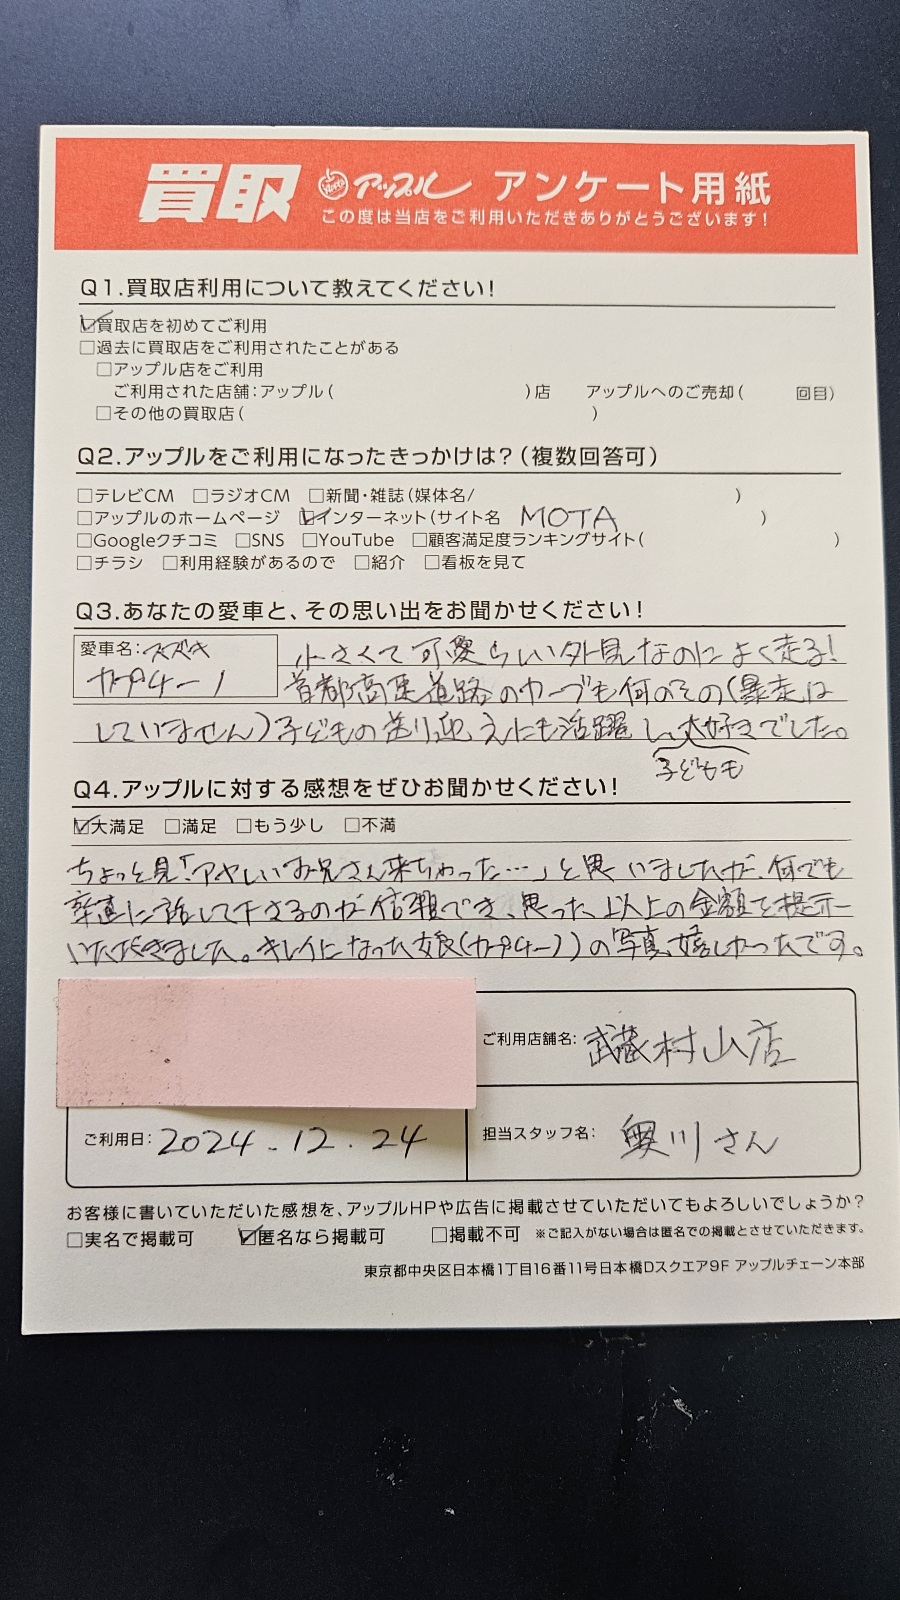 買取 Apple アップル アンケート用紙
この度は当店をご利用いただきありがとうございます!
Q1.買取店利用について教えてください!
☑買取店を初めてご利用
□過去に買取店をご利用されたことがある
□アップル店をご利用
ご利用された店舗:アップル( )店 アップルへのご売却( 回目)
□その他の買取店( )
Q2.アップルをご利用になったきっかけは?(複数回答可)
□テレビCM □ラジオCM □新聞・雑誌(媒体名/ )
□アップルのホームページ ☑インターネット(サイト名 MOTA )
□Googleクチコミ □SNS □YouTube □顧客満足度ランキングサイト( )
□チラシ □利用経験があるので □紹介 □看板を見て
Q3.あなたの愛車と、その思い出をお聞かせください!
愛車名:スズキ
カプチーノ
小さくて可愛らしい外見なのによく走る!
首都高速道路のカーブも何のその(暴走は
していません)子どもの送り迎えにも活躍し、大好きでした。
子どもも
Q4.アップルに対する感想をぜひお聞かせください!
☑大満足 □満足 □もう少し □不満
ちょっと見「アヤしいお兄さん来ちゃった…」と思いましたが、何でも
率直に話して下さるのが信頼でき、思った以上の金額を提示
いただきました。キレイになった娘(カプチーノ)の写真、嬉しかったです。
ご利用店舗名: 武蔵村山店
ご利用日: 2024.12.24
担当スタッフ名: 奥川さん
お客様に書いていただいた感想を、アップルHPや広告に掲載させていただいてもよろしいでしょうか?
□実名で掲載可 ☑匿名なら掲載可 □掲載不可 ※ご記入がない場合は匿名での掲載とさせていただきます。
東京都中央区日本橋1丁目16番11号日本橋Dスクエア9F アップルチェーン本部